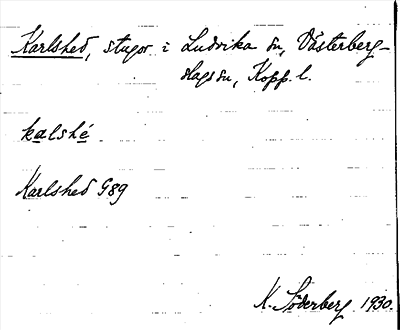 Karlshed, stugor i Ludvika sn, Västerberg-
slags du, Kopp. l.
kalshé.
Karlshed G89
K. Söderberg 1930.